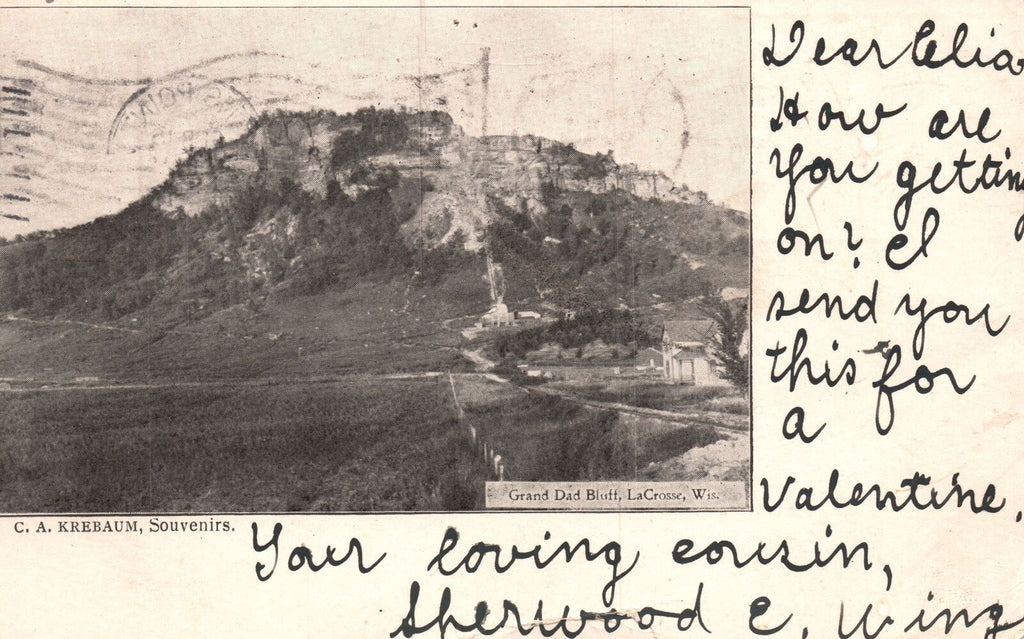 Dear Celia
How are
you getting
on? I
send you
this for
a
Valentine.
Grand Dad Bluff, LaCrosse, Wis.
C. A. KREBAUM, Souvenirs.
Your loving cousin,
Sherwood E. Wing